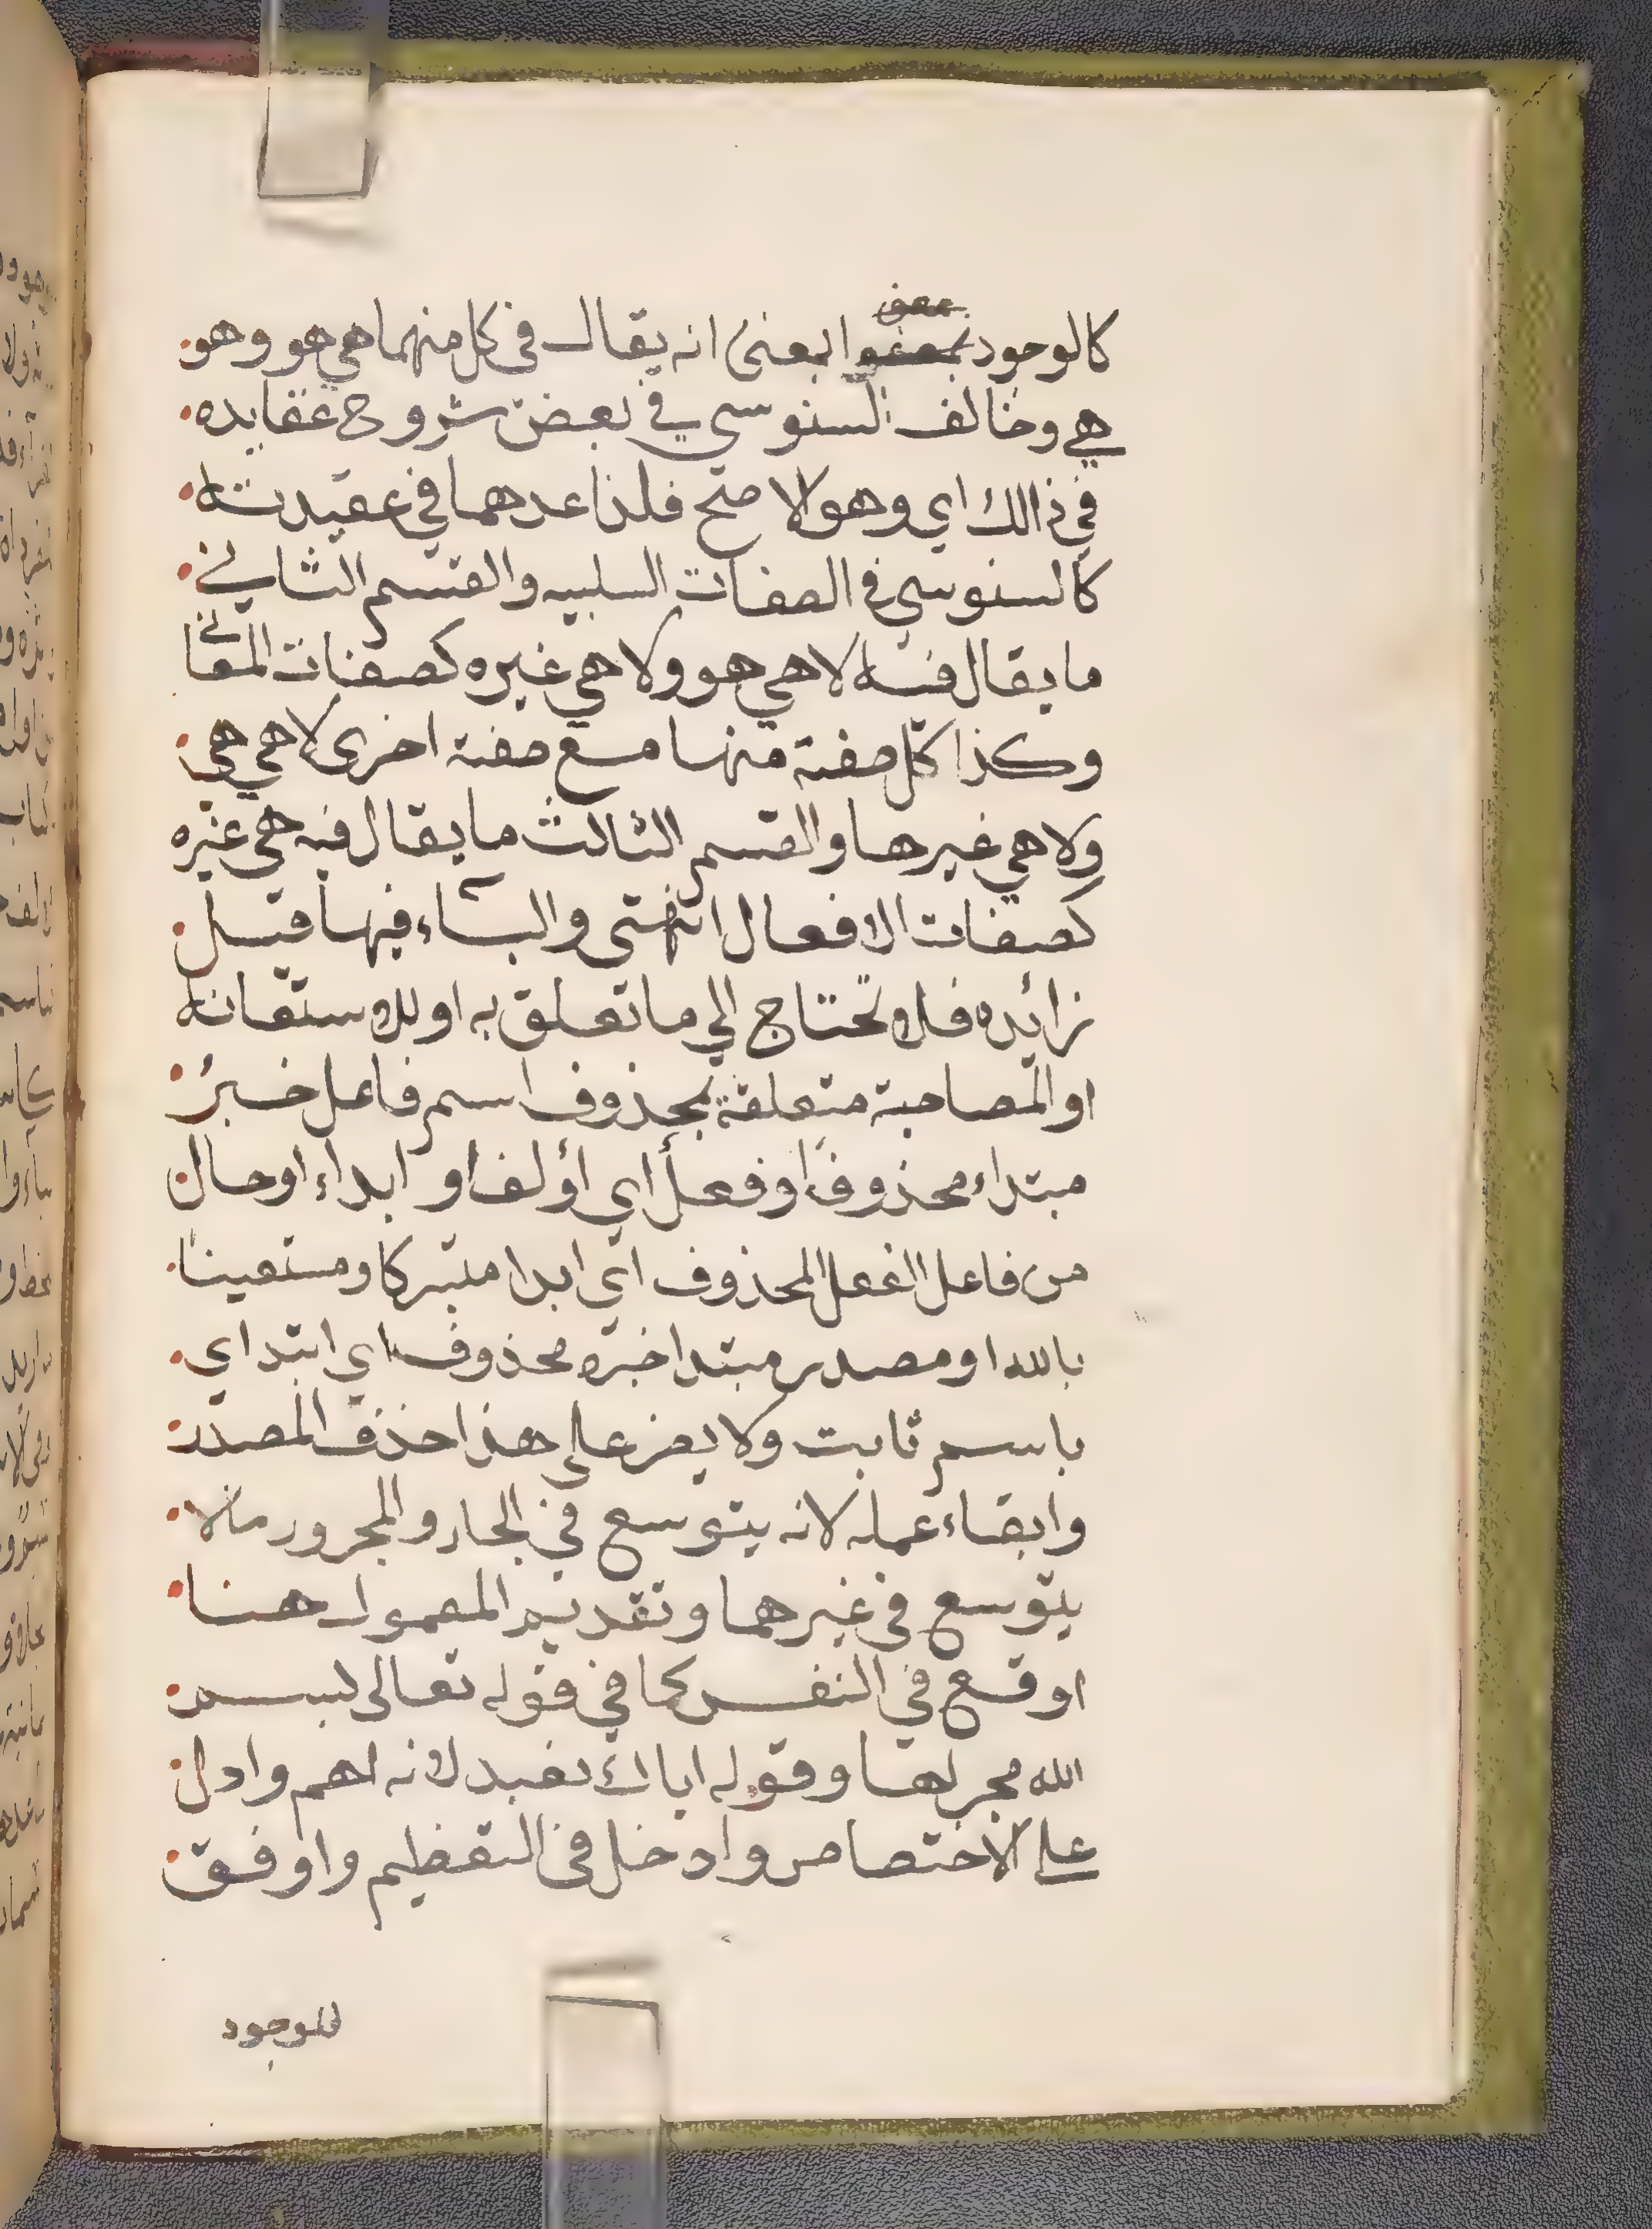 كالوجود بمعنى انه يقال في كل منهما هي هو وهو
هي وخالف السنوسي في بعض شروح عقايده
في ذالك اي وهو الاصح فلذا عدهما في عقيدته
كالسنوسي في الصفات السلبيه والقسم الثاني
ما يقال فيه لا هي هو ولا هي غيره كصفات المعاني
وكذا كل صفة منها مع صفة اخرى لا هي هي
ولا هي غيرها والقسم الثالث ما يقال فيه هي غيره
كصفات الافعال انتهى والباء فيها قيل
زائده فلا تحتاج الي ما تعلق به او للاستعانة
او المصاحبة متعلقة بمحذوف اسم فاعل خبر
مبتداء محذوف او فعل اي أولف او ابداء او حال
من فاعل الفعل المحذوف اي ابدا متبركا ومستعينا
بالله او مصدر مبتدا خبره محذوف اي ابتداي
باسم ثابت ولا يضر على هذا حذف المصدر
وابقاء عمله لانه يتوسع في الجار والمجرور مالا
يتوسع في غيرهما وتقديم المعمول هنا
اوقع في النفس كما في قوله تعالى بسم
الله مجراها وقوله اياك نعبد لانه اهم وادل
على الاختصاص وادخل في التعظيم واوفق
للوجود